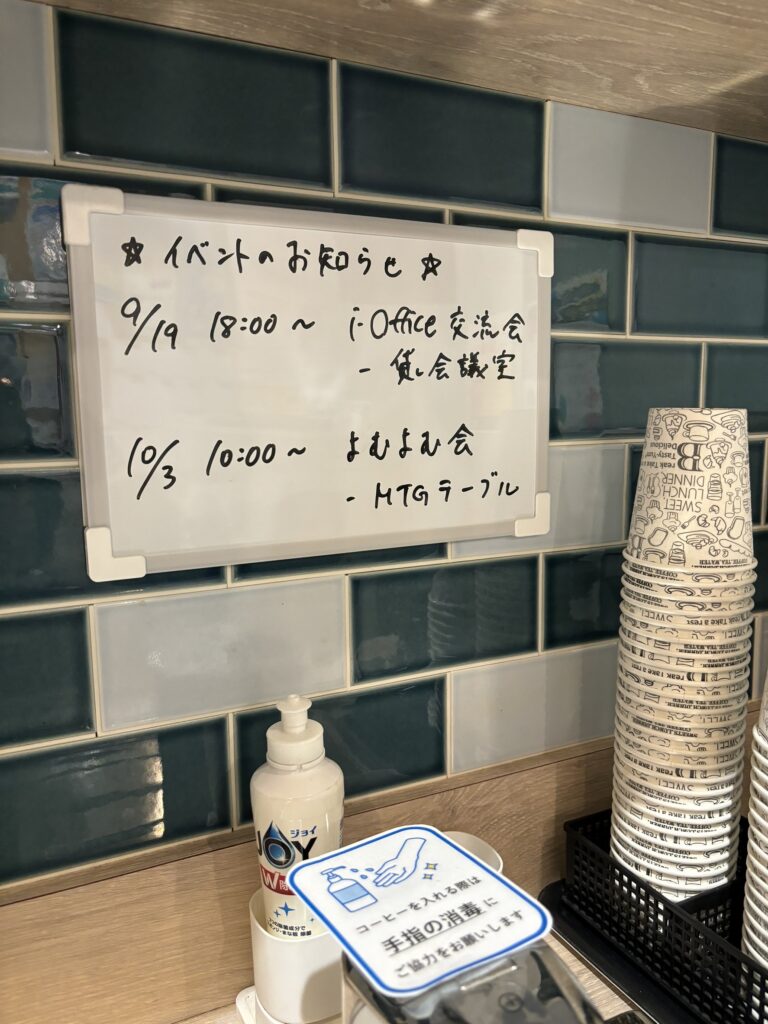 ☆ イベントのお知らせ ☆
9/19 18:00～ i-Office 交流会
- 貸し会議室
10/3 10:00～ よむよむ会
- MTGテーブル
B
reak Take a
Tasty-Yum
Delicious
SWEET
LUNCH
DINNER
COFFEE TEA WATER
reak Take a rest
SWEET
ジョイ
JOY
W除
コーヒーを入れる際は
手指の消毒に
ご協力をお願いします